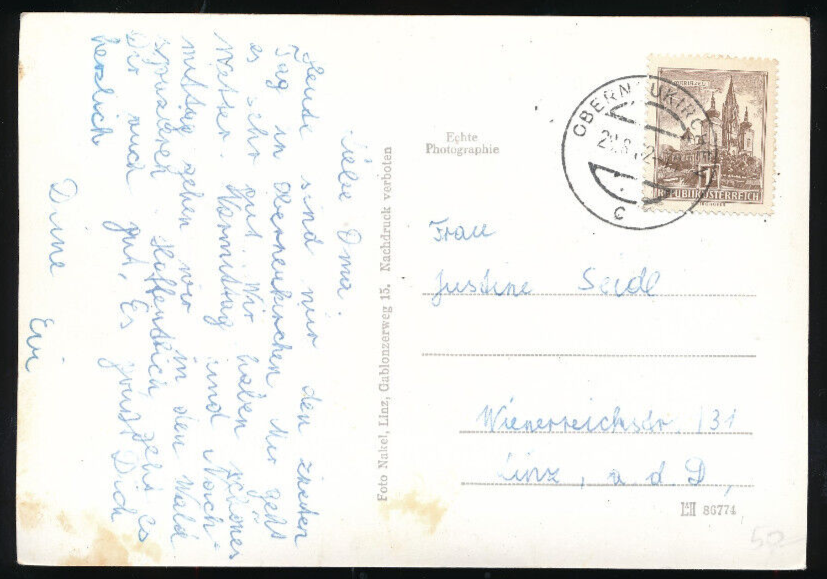 Liebe Oma!
Heute sind wir den zweiten
Tag in Oberneukirchen. Mir geht
es sehr gut. Wir haben schönes
Wetter. Vormittag und Nach-
mittag gehen wir in den Wald
spazieren. Hoffentlich geht es
Dir auch gut. Es grüßt Dich
herzlich
Deine
Evi
Foto Nakel, Linz, Gablonzerweg 15. Nachdruck verboten
Echte
Photographie
OBERNEUKIRCHEN
C
REPUBLIK ÖSTERREICH
Frau
Justine Seidl
Wienerreichsstr. 131
Linz, a. d. D.
86774
50-